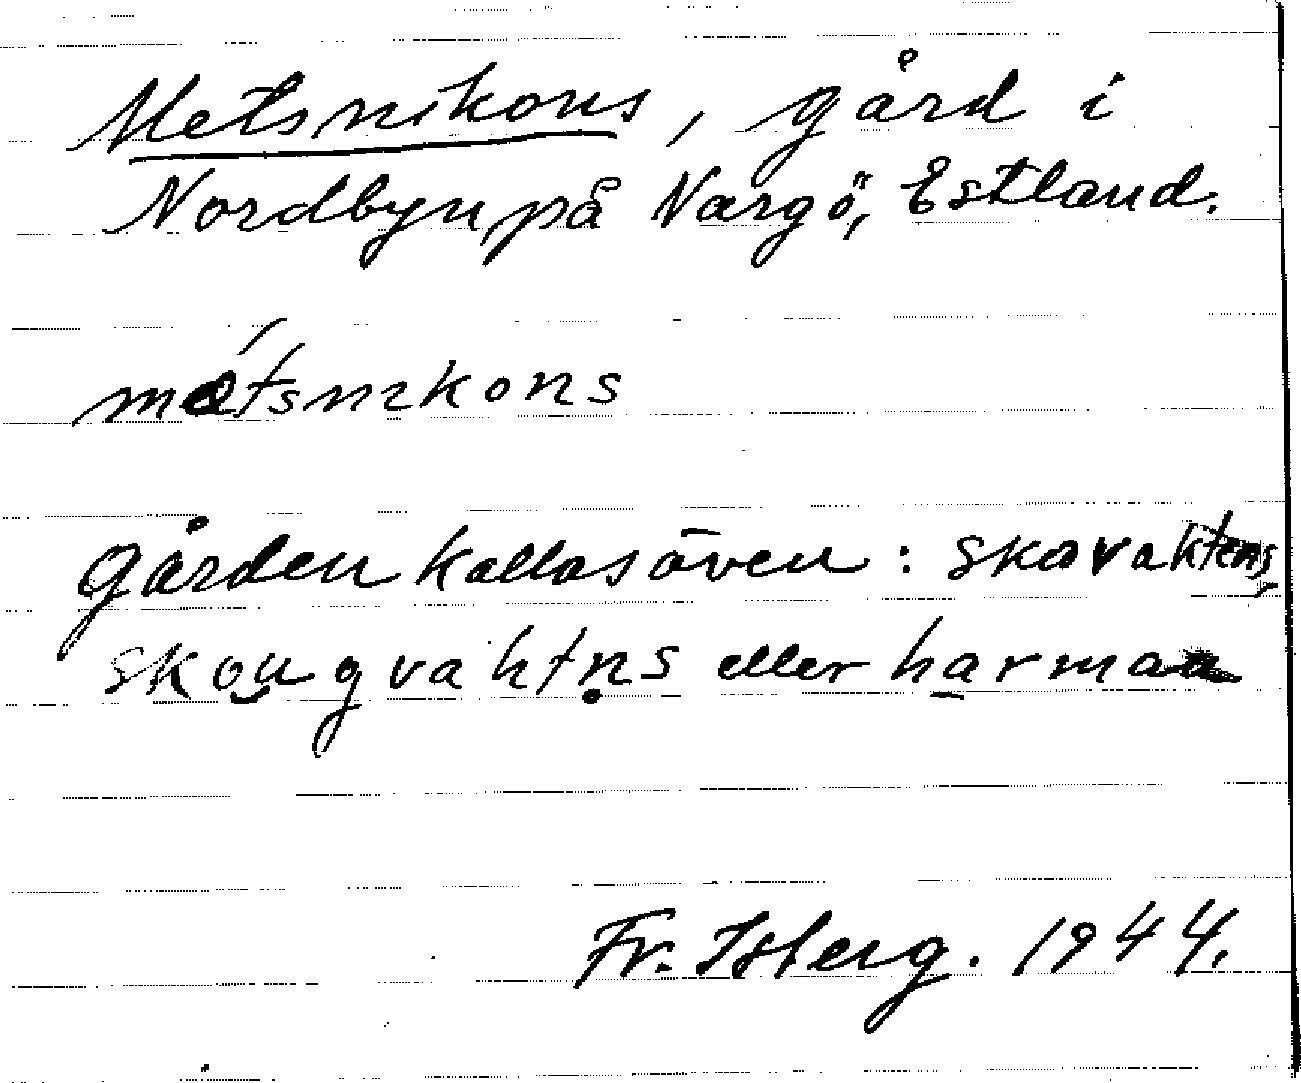 Metsnikons, gård i
Nordbyn, på Nargö, Estland.
métsnikons
Gården kallas även: Skovaktens,
skou̯gvahtn̥s eller harmaa
Fr. Isberg. 1944.